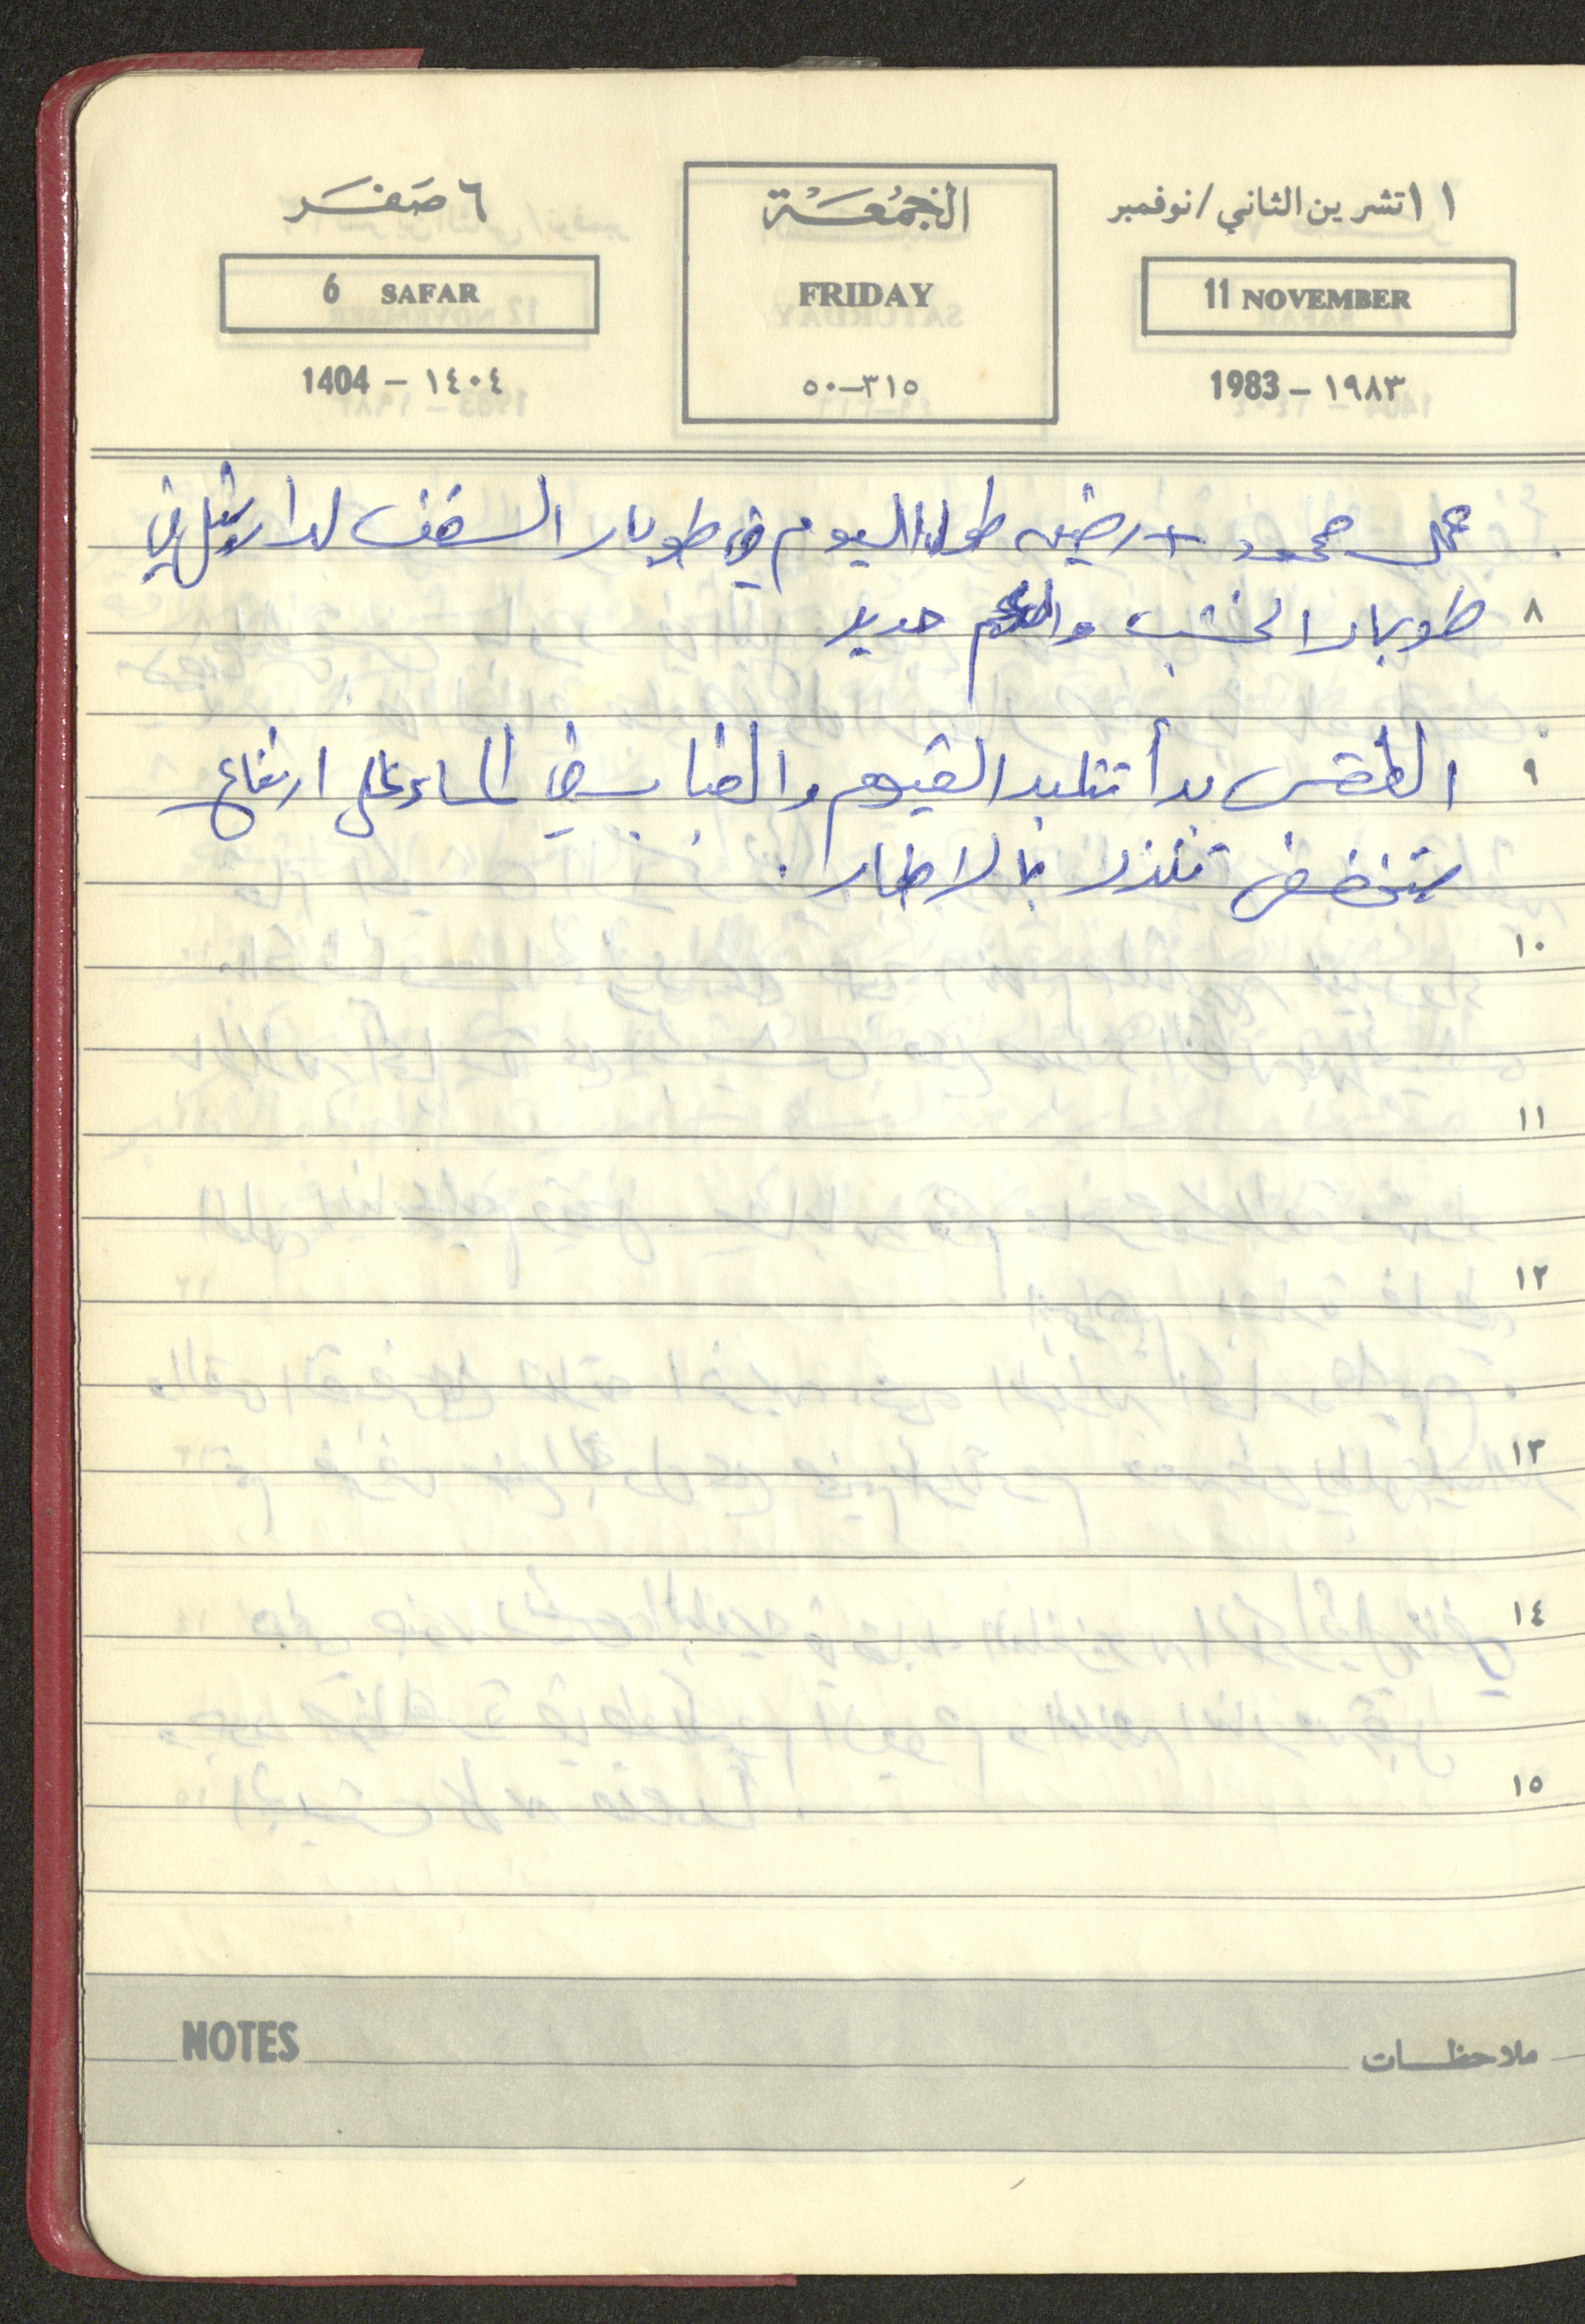 ١١ تشرين الثاني / نوفمبر
11 NOVEMBER
1983 – ١٩٨٣
الجمُعَة
FRIDAY
٣١٥–٥٠
٦ صَفَر
6 SAFAR
1404 – ١٤٠٤
عمل محمود + رضي طول اليوم في طوبار السقف لدار
٨ طوبار الخشب حديد
٩ الطقس بدأ تتلبد الغيوم والضباب في السماء على ارتفاع
منخفض تنذر بالامطار .
١٠
١١
١٢
١٣
١٤
١٥
NOTES
ملاحظات